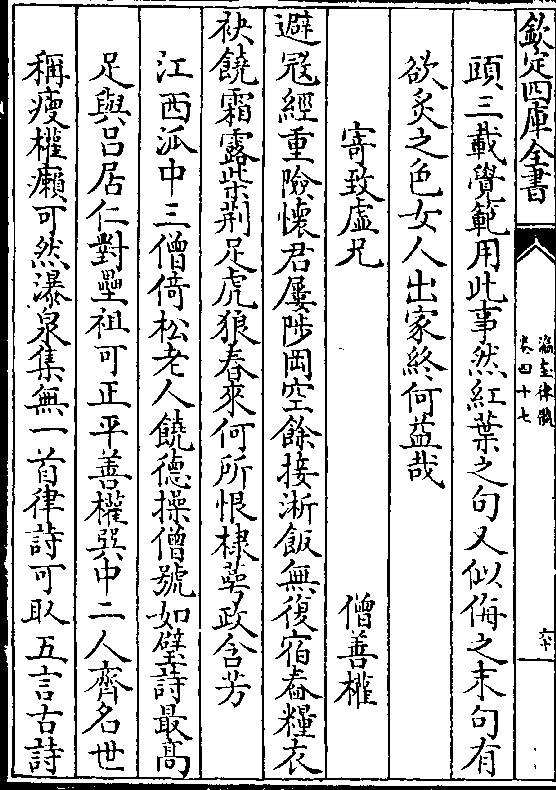 欽定四庫全書
瀛奎律髓
卷四十七
六十
頭三載覺範用此事然紅葉之句又似侮之末句有
欲炙之色女人出家終何益哉
寄致虛兄 僧善權
避冦經重險懷君屢陟岡空餘接淅飯無復宿舂糧衣
袂饒霜露柴荆足虎狼春來何所恨棣萼政含芳
江西泒中三僧倚松老人饒德操僧號如璧詩最髙
足與吕居仁對壘祖可正平善權巽中二人齊名世
稱瘦權癩可然瀑泉集無一首律詩可取五言古詩